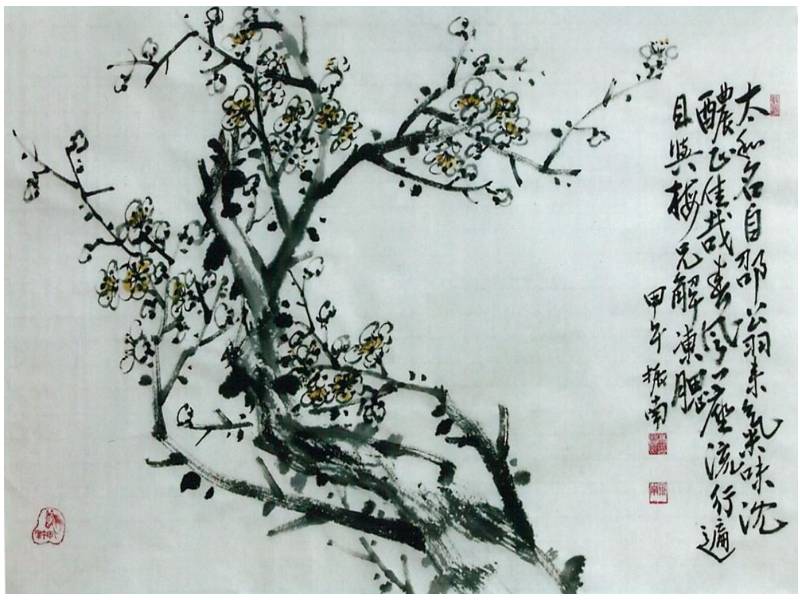 太和名自邵翁来氣味沈
醲正佳哉春風一座流行遍
且與梅兄解凍腮
甲午振南